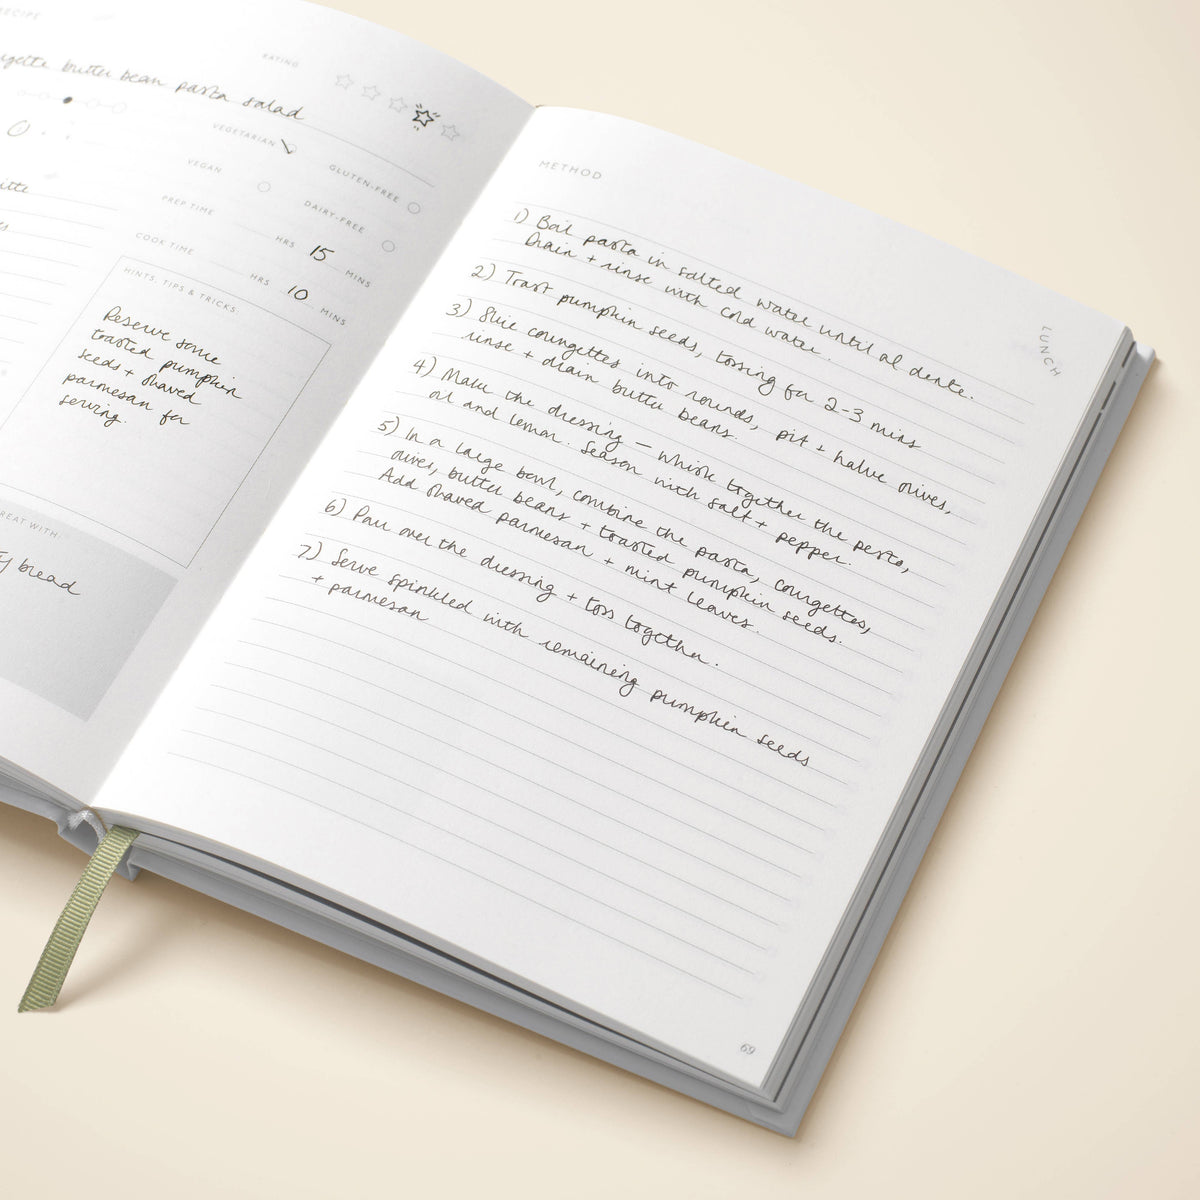 RECIPE
butter bean pasta salad
RATING
VEGETARIAN
GLUTEN-FREE
VEGAN
DAIRY-FREE
PREP TIME HRS 15 MINS
COOK TIME HRS 10 MINS
HINTS, TIPS & TRICKS
Reserve some
toasted pumpkin
seeds + shaved
parmesan for
serving.
WITH
bread
METHOD
1) Boil pasta in salted water until al dente.
Drain + rinse with cold water.
2) Toast pumpkin seeds, tossing for 2-3 mins
3) Slice courgettes into rounds, pit + halve olives,
rinse + drain butter beans.
4) Make the dressing – whisk together the pesto,
oil and lemon. Season with salt + pepper.
5) In a large bowl, combine the pasta, courgettes,
olives, butter beans + toasted pumpkin seeds.
Add shaved parmesan + mint leaves.
6) Pour over the dressing + toss together.
7) Serve sprinkled with remaining pumpkin seeds
+ parmesan
LUNCH
69